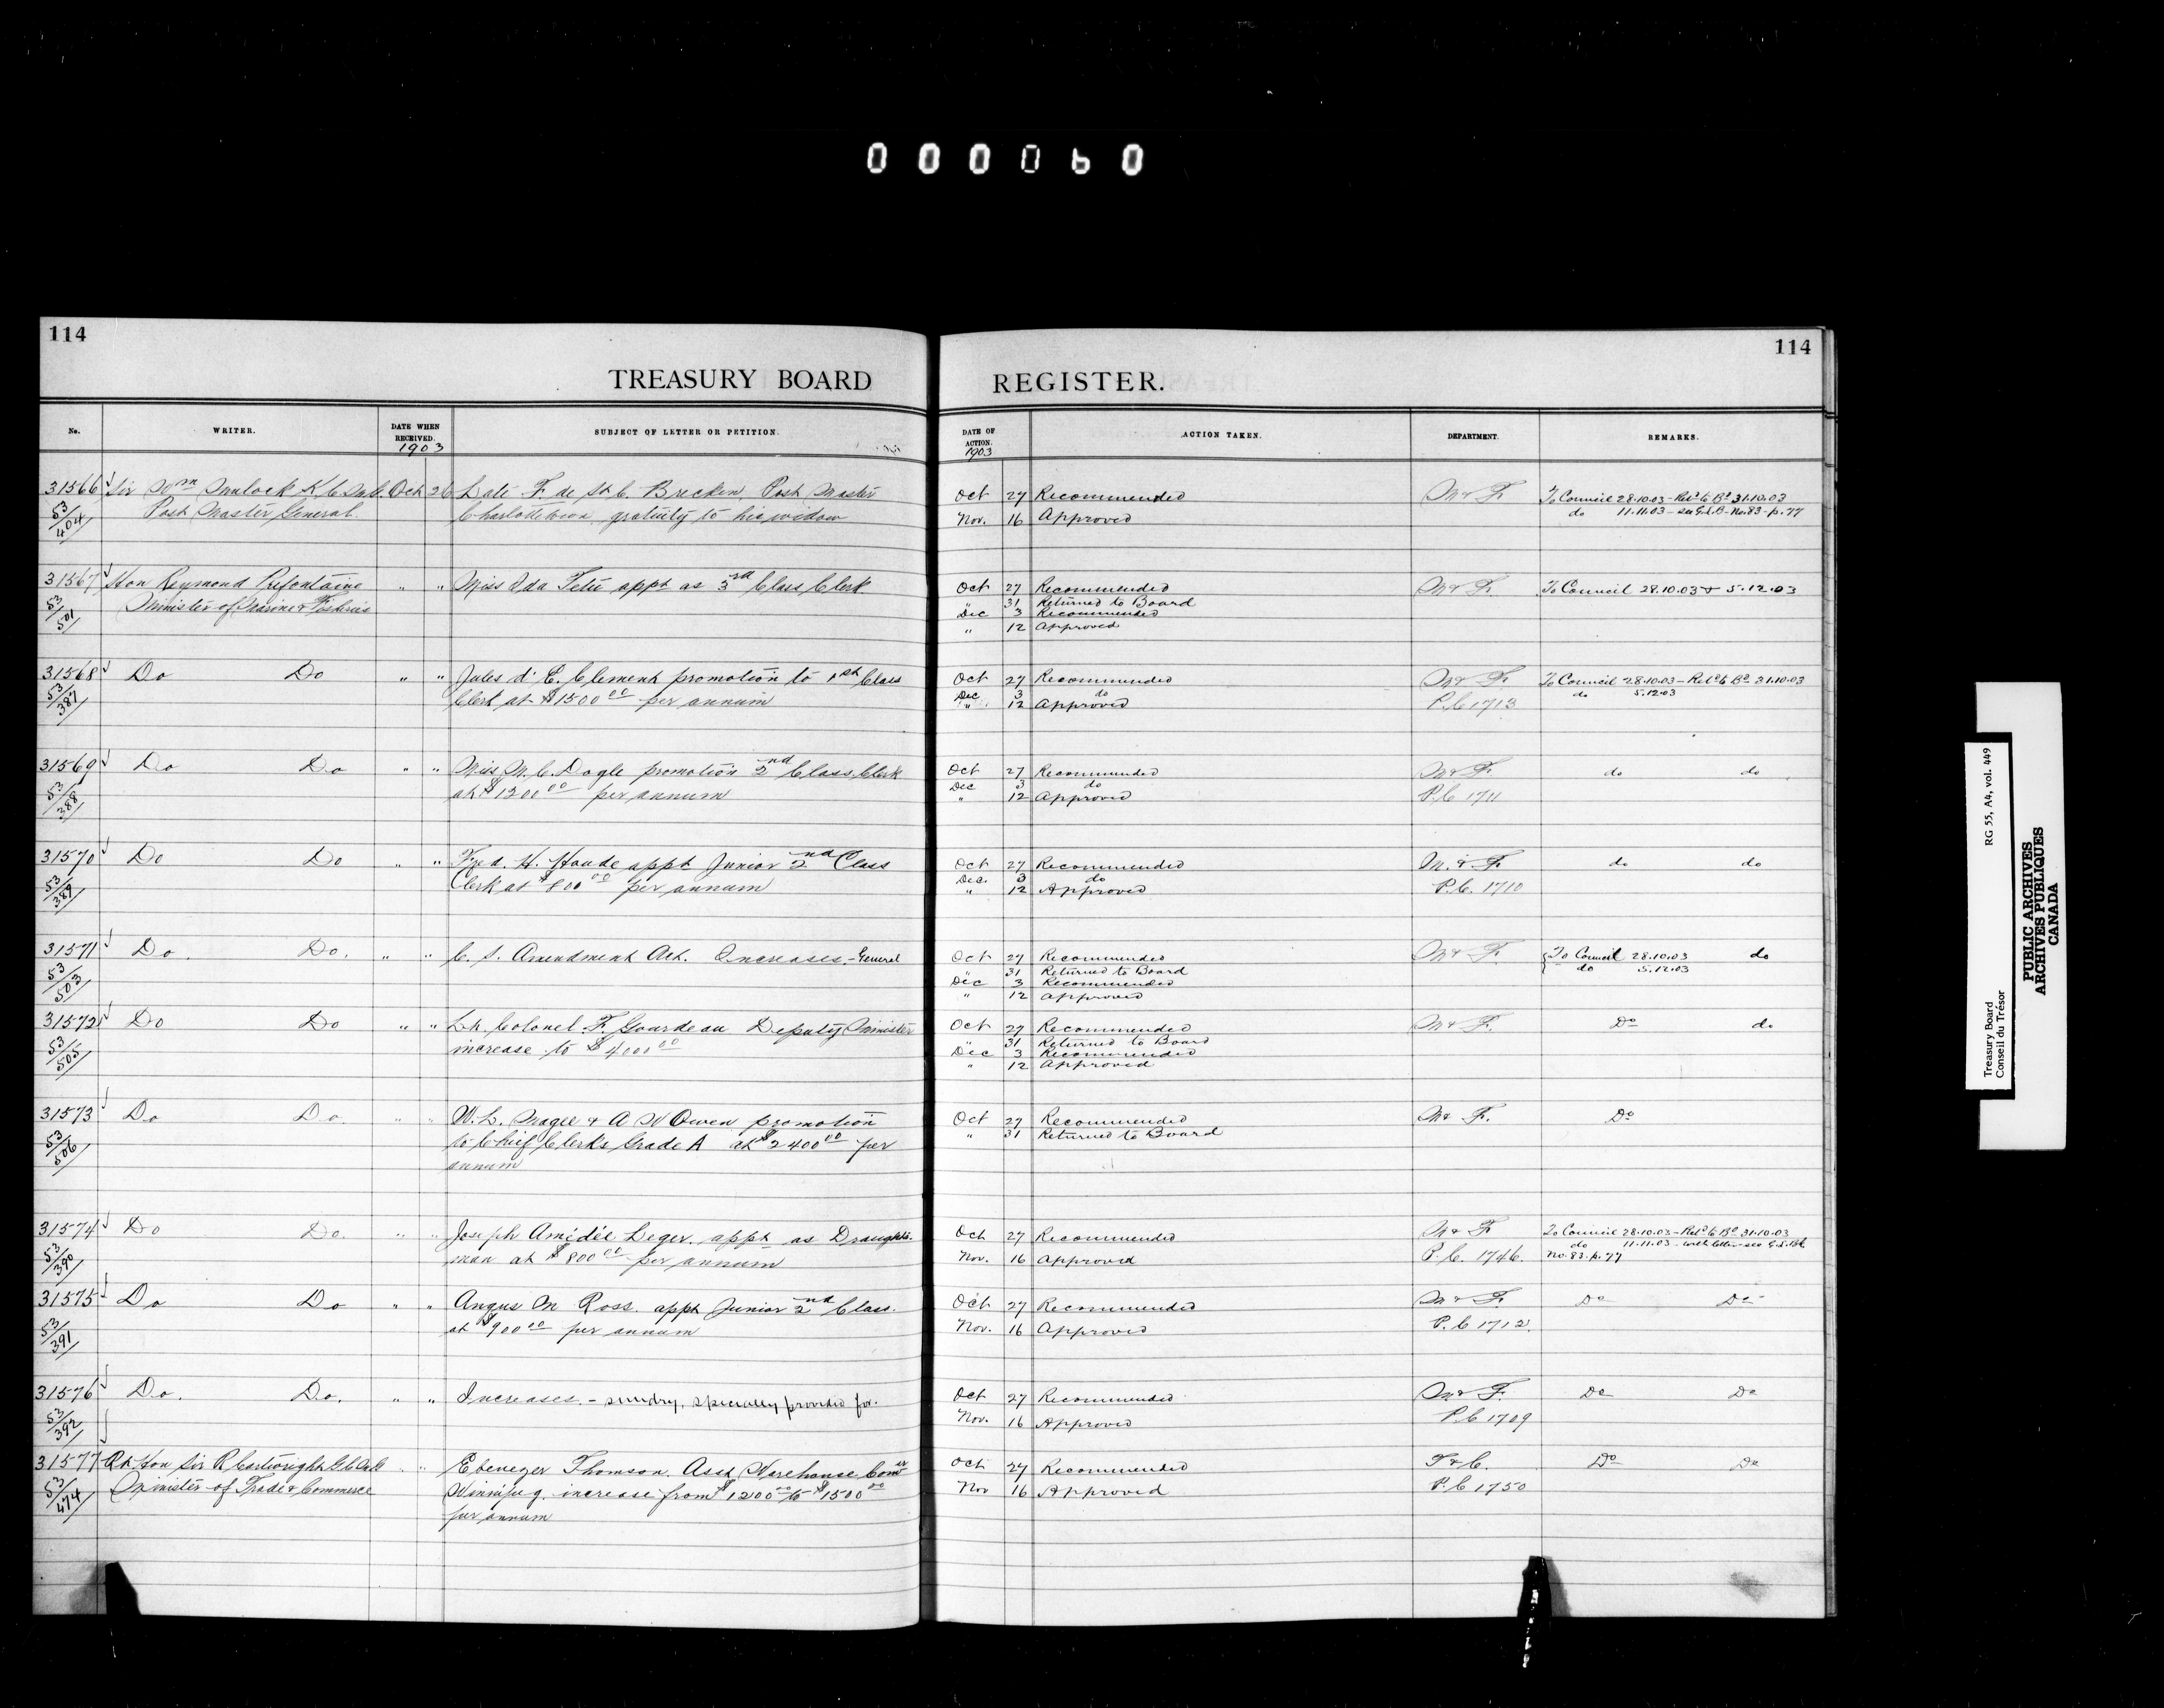 000060
114
TREASURY BOARD
No.
WRITER.
DATE WHEN RECEIVED.
1903
SUBJECT OF LETTER OR PETITION.
31566 Sir Wm Mulock K.C.M.G. Oct 26 Late F. de St C. Brecken, Post Master
53/404 Post Master General. Charlottetown, gratuity to his widow
31567 Hon Reymond Prefontaine " " Miss Ida Tetu appt as 3rd Class Clerk
53/501 Minister of Marine & Fisheries
31568 Do Do " " Jules d' E. Clement promotion to 1st Class
53/387 Clerk at $1500 00 per annum
31569 Do Do " " Miss M. C. Dogle promotion 2nd Class Clerk
53/388 at $1200 00 per annum
31570 Do Do " " Fred. H. Houde appt Junior 2nd Class
53/389 Clerk at $800 00 per annum
31571 Do. Do. " " C. S. Amendment Act. Increases. - General
53/503
31572 Do Do " " Lt. Colonel F. Gourdeau Deputy Minister
53/505 increase to $4000 00
31573 Do Do. " " W. L. Magee & A W Owen promotion
53/506 to Chief Clerks Grade A at $2400 00 per
annum
31574 Do Do. " " Joseph Amidée Leger. appt as Draughts-
53/390 man at $800 00 per annum
31575 Do Do " " Angus M Ross. appt Junior 2nd Class.
53/391 at $900 00 per annum
31576 Do. Do. " " Increases. - sundry, specially provided for.
53/392
31577 Rt Hon Sir R Cartwright G.C.M.G " " Ebenezer Thomson. Asst Warehouse Comr
53/474 Minister of Trade & Commerce Winnipeg. increase from $1200 00 to $1500 00
per annum
114
REGISTER.
DATE OF ACTION.
1903
ACTION TAKEN.
DEPARTMENT.
REMARKS.
Oct 27 Recommended M & F. To Council 28.10.03 - Retd to Bd 31.10.03
Nov. 16 Approved do 11.11.03 - see G.L.B - No. 83 - p. 77
Oct 27 Recommended M & F. To Council 28.10.03 & 5.12.03
" 31 Returned to Board
Dec 3 Recommended
" 12 Approved
Oct 27 Recommended M & F. To Council 28.10.03 - Retd to Bd 31.10.03
Dec 3 do do 5.12.03
" 12 Approved P.C 1713
Oct 27 Recommended M & F. do do
Dec 3 do
" 12 Approved P.C 1711
Oct 27 Recommended M. & F. do do
Dec. 3 do
" 12 Approved P.C. 1710
Oct 27 Recommended M & F. To Council 28.10.03 do
" 31 Returned to Board do 5.12.03
Dec 3 Recommended
" 12 Approved
Oct 27 Recommended M & F. Do do
" 31 Returned to Board
Dec 3 Recommended
" 12 Approved
Oct 27 Recommended M & F. Do
" 31 Returned to Board
Oct 27 Recommended M & F. To Council 28.10.03 - Retd to Bd 31.10.03
do 11.11.03 - with letter - see G.L.Bk
Nov. 16 Approved P.C. 1746. No. 83. p. 77
Oct 27 Recommended M & F. Do Do
Nov. 16 Approved P.C 1712.
Oct 27 Recommended M & F. Do Do
Nov. 16 Approved P.C 1709
Oct 27 Recommended T & C. Do Do
Nov 16 Approved P.C 1750
Treasury Board
Conseil du Trésor
RG 55, A4, vol. 449
PUBLIC ARCHIVES
ARCHIVES PUBLIQUES
CANADA